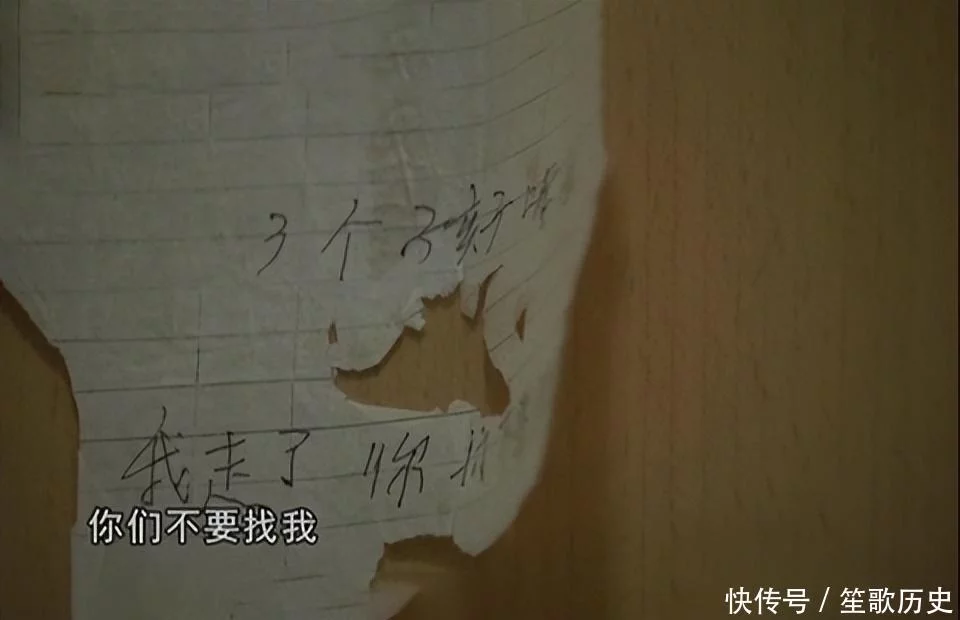 3个
我走了 你
你们不要找我
快传号 / 笙歌历史